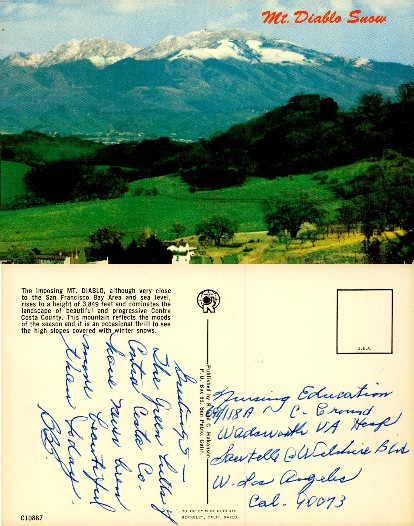 Mt. Diablo Snow
The imposing MT. DIABLO, although very close
to the San Francisco Bay Area and sea level,
rises to a height of 3,849 feet and dominates the
landscape of beautiful and progressive Contra
Costa County. This mountain reflects the moods
of the season and it is an occasional thrill to see
the high slopes covered with winter snows.
Greetings –
The Green hills of
Contra Costa Co.
have never been
more beautiful
than today.
Published by
P. O. Box
Nursing Education
118A C-Ground
Wadsworth VA Hosp
Sawtelle & Wilshire Blvd
W. Los Angeles
Cal. 90073
C10867